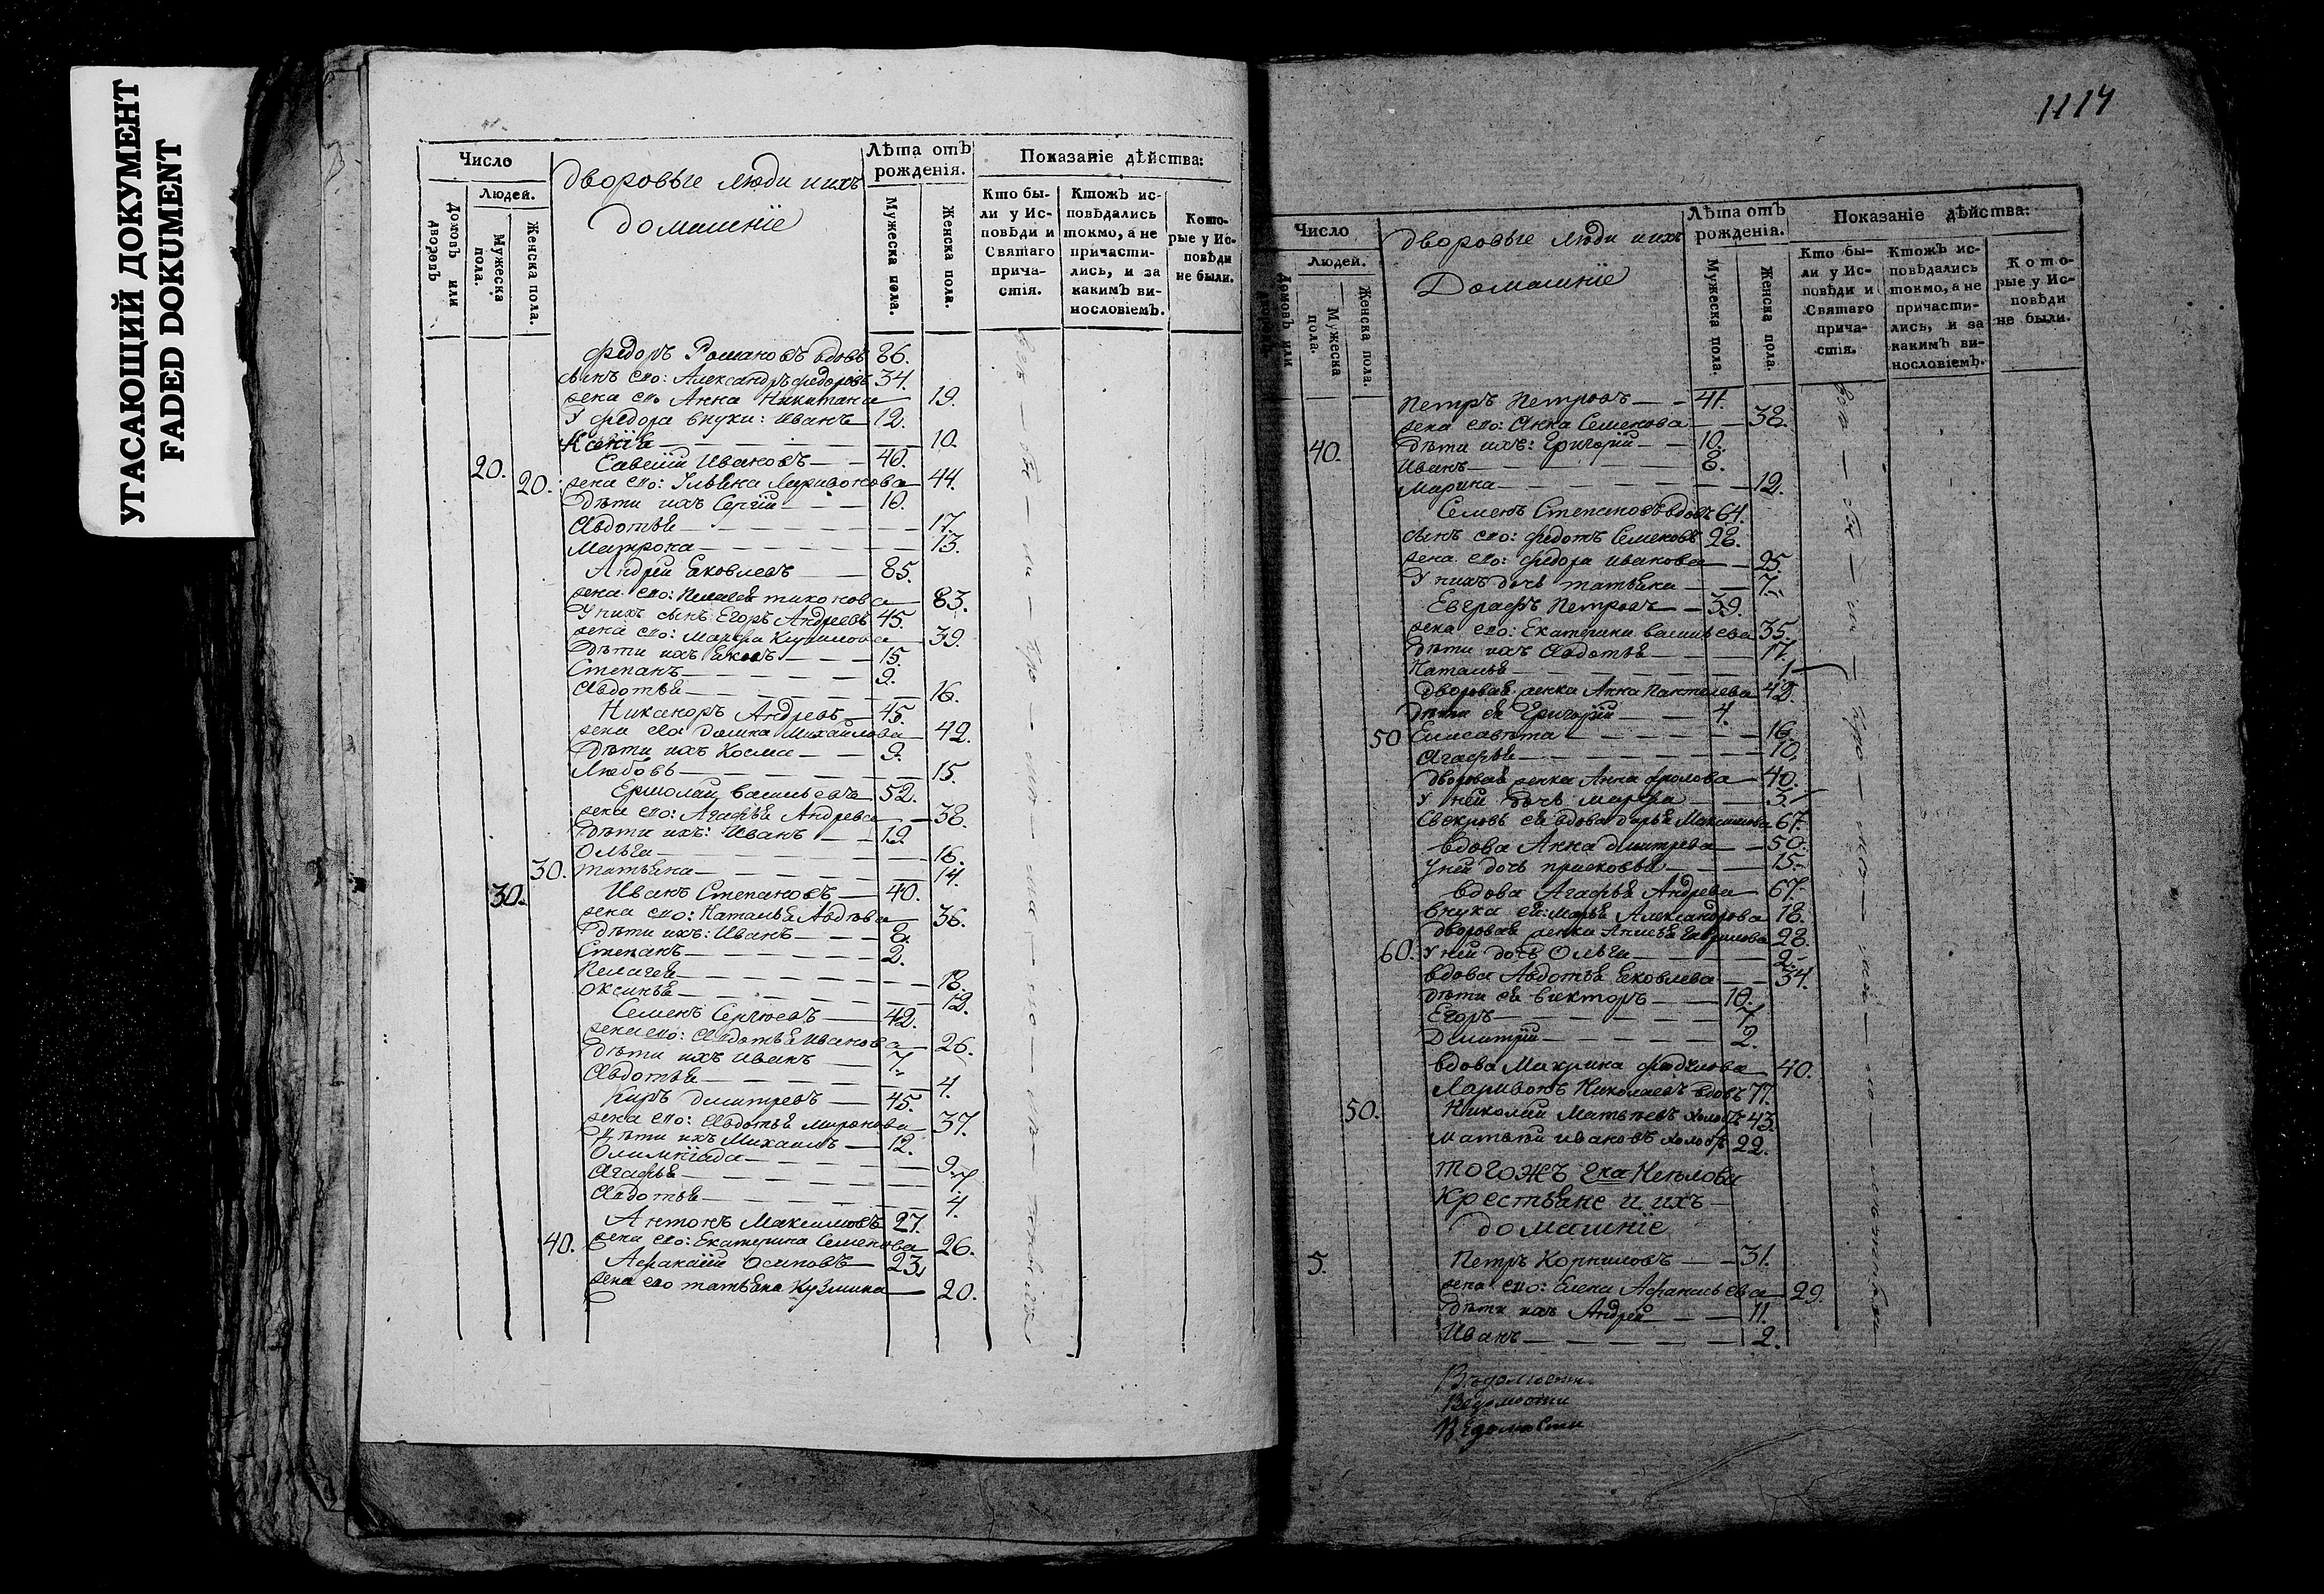 УТАСАЮЩИЙ ДОКУМЕНТ
FADED DOKUMENT
Число
Людей.
Домовъ или дворовъ
Мужеска пола.
Женска пола.
Дворовые люди и ихъ
домашніе
Лѣта отъ рожденія.
Мужеска пола.
Женска пола.
Показаніе дѣйства:
Кто бы-
ли у Ис-
повѣди и
Святаго
прича-
стія.
Ктожъ ис-
повѣдались
токмо, а не
причасти-
лись, и за
какимъ ви-
нословіемъ.
Кото-
рые у Ис-
повѣди
не были.
Федоръ Романовъ вдовъ 86.
сынъ его: Александръ Федоровъ 34.
жена его Анна Никитина 19.
У Федора внуки: Иванъ 12.
Ксенія 10.
20. Савелій Ивановъ 40.
20. жена его: Ульяна Ларивонова 44.
Дѣти ихъ Сергій 10.
Авдотья 17.
Матрона 13.
Андрей Яковлевъ 85.
жена его: Пелагея Тихонова 83.
У нихъ сынъ Егоръ Андреевъ 45.
жена его: Марфа Кирилова 39.
Дѣти ихъ Яковъ 15.
Степанъ 9.
Авдотья 16.
Никаноръ Андреевъ 45.
жена его: Домна Михайлова 42.
Дѣти ихъ Косма 9.
Любовь 15.
Ермолай Васильевъ 52.
жена его: Агафья Андреева 38.
Дѣти ихъ: Иванъ 19.
Ольга 16.
30. Татьяна 14.
30. Иванъ Степановъ 40.
жена его: Наталья Авдѣева 36.
Дѣти ихъ: Иванъ 8.
Степанъ 2.
Пелагея 18.
Оксинья 12.
Семенъ Сергѣевъ 42.
жена его: Авдотья Иванова 26.
Дѣти ихъ Иванъ 7.
Авдотья 4.
Киръ Дмитревъ 45.
жена его: Авдотья Миронова 37.
Дѣти ихъ Михаилъ 12.
Олимпіада 9.
Агафья 7.
Авдотья 4.
Антонъ Максимовъ 27.
40. жена его: Екатерина Семенова 26.
Афанасій Осиповъ 23.
жена его Татьяна Кузмина 20.
1114
Число
Людей.
Домовъ или дворовъ
Мужеска пола.
Женска пола.
Дворовые люди и ихъ
Домашніе
Лѣта отъ рожденія.
Мужеска пола.
Женска пола.
Показаніе дѣйства:
Кто бы-
ли у Ис-
повѣди и
Святаго
прича-
стія.
Ктожъ ис-
повѣдались
токмо, а не
причасти-
лись, и за
какимъ ви-
нословіемъ.
Кото-
рые у Ис-
повѣди
не были.
Петръ Петровъ 41.
жена его: Анна Семенова 38.
40. Дѣти ихъ: Григорій 10.
Иванъ 8.
Марина 12.
Семенъ Степановъ вдовъ 64.
сынъ его: Федотъ Семеновъ 28.
жена его: Федора Иванова 25
У нихъ дочь Татьяна 7.
Евграфъ Петровъ 39.
жена его: Екатерина Васильева 35.
Дѣти ихъ Авдотья 17.
Наталья 1.
Дворовая женка Анна Пантелева 42.
Дѣти ея Григорій 4.
50 Елисавѣта 16.
Агафья 10.
Дворовая женка Анна Фролова 40.
У ней дочь Марфа 3.
Свекровь ея вдова Дарья Максимова 67.
Вдова Анна Дмитрева 50.
У ней дочь Присковья 15.
Вдова Агафья Андрева 67.
Внука ея: Марья Александрова 18.
Дворовая женка Гаврилова 28.
60. У ней дочь Ольга 2.
Вдова Авдотья Яковлева 34.
Дѣти ея Викторъ 10.
Егоръ 7
Дмитрій 2.
Вдова Макрина 40.
Ларивонъ Николаевъ вдовъ 77.
50. Николай Матвѣевъ холостъ 43.
Матвѣй Ивановъ холостъ 22.
Тогожъ Гна Неѣлова
Крестьяне и ихъ
домашніе
5. Петръ Корниловъ 31.
жена его: Елена Афанасьева 29.
Дѣти ихъ Андрей 11.
Иванъ 2.
Вѣдомости.
Ведомости
Ведомости